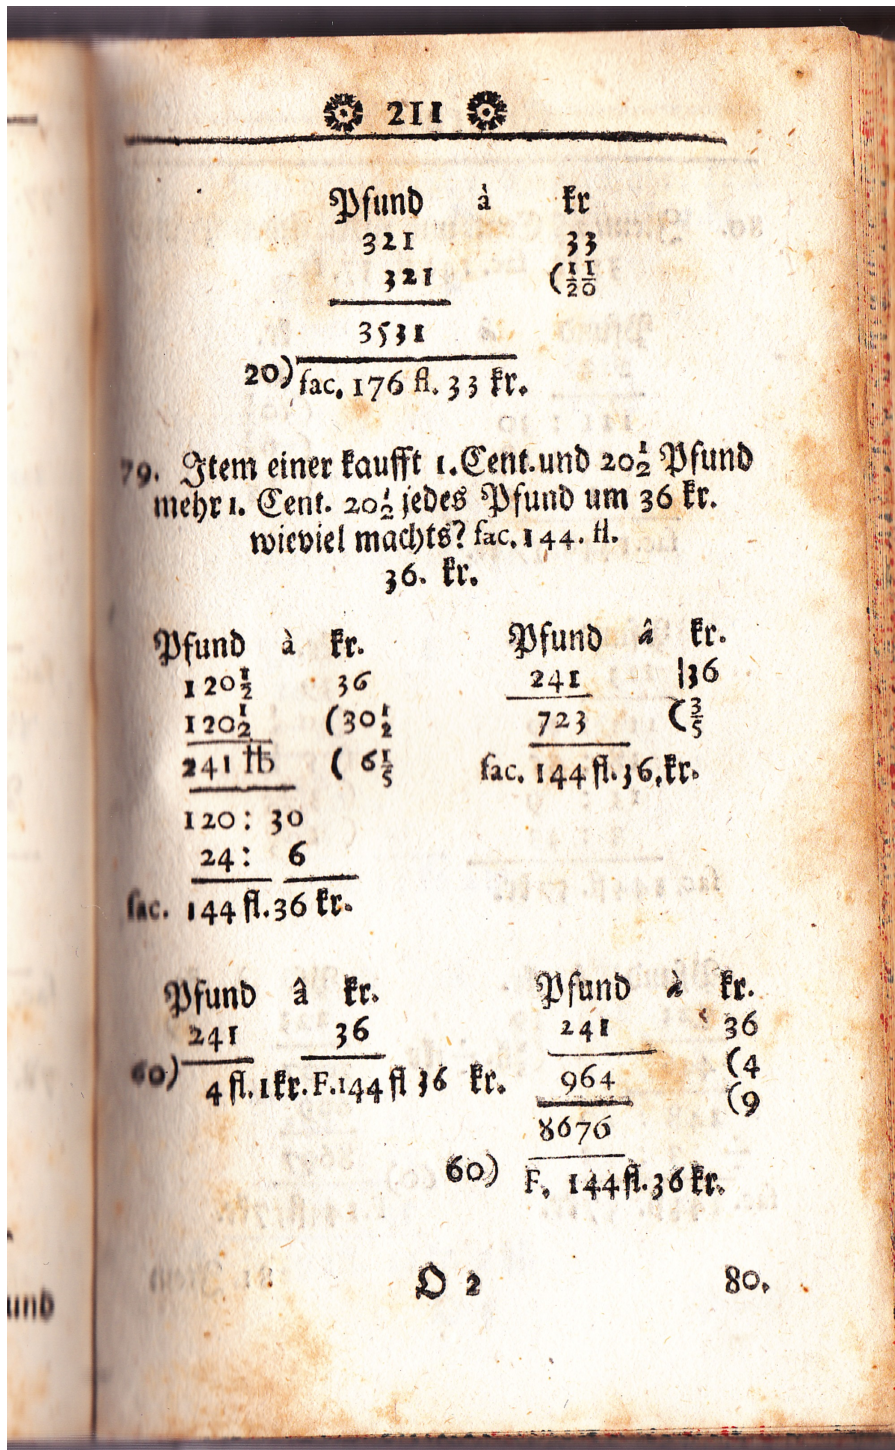 211
Pfund à kr
321 33
321 (11/20
3531
20) fac. 176 fl. 33 kr.
79. Item einer kaufft 1. Cent. und 20 1/2 Pfund
mehr 1. Cent. 20 1/2 jedes Pfund um 36 kr.
wieviel machts? fac. 144. fl.
36. kr.
Pfund à kr.
120 1/2 36
120 1/2 (30 1/2
241 ℔ ( 6 1/5
120: 30
24: 6
fac. 144 fl. 36 kr.
Pfund â kr.
241 |36
723 (3/5
fac. 144 fl. 36. kr.
Pfund â kr.
241 36
60) 4 fl. 1 kr. F. 144 fl 36 kr.
Pfund à kr.
241 36
964 (4
(9
8676
60) F. 144 fl. 36 kr.
O 2 80.
und